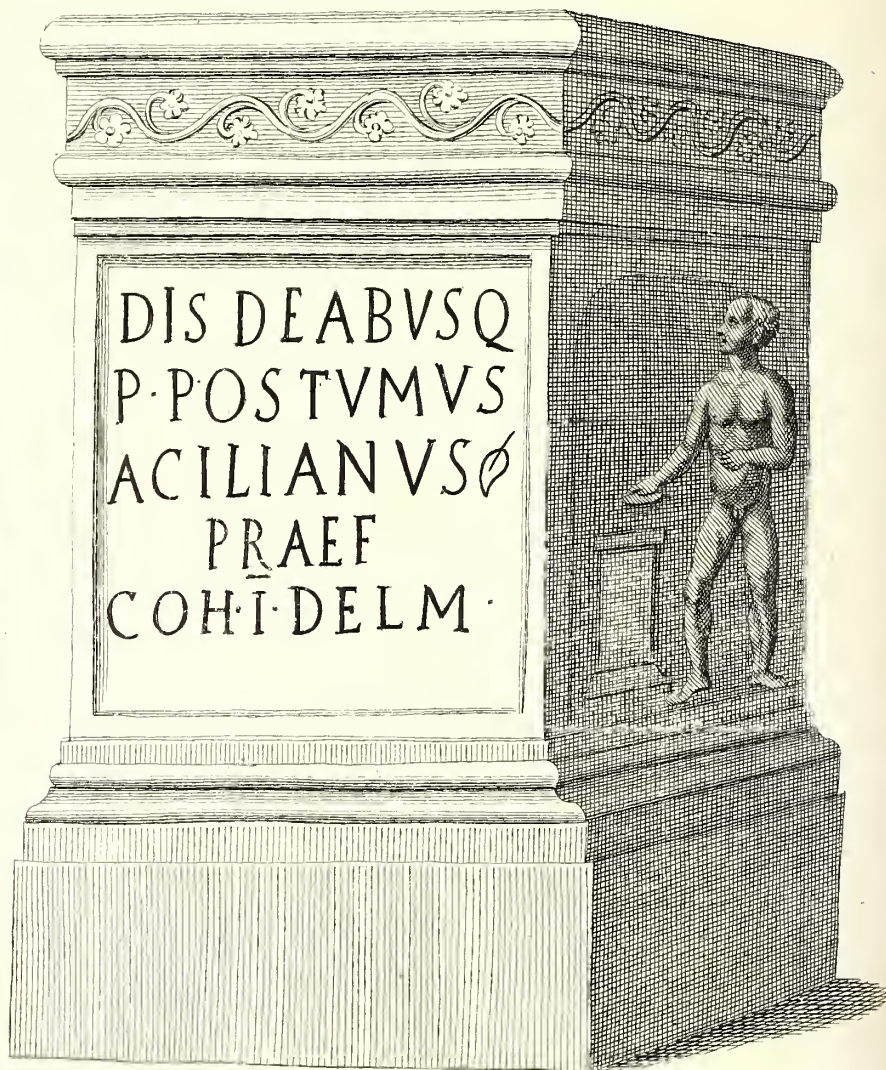 DIS DEABVSQ
P·POSTVMVS
ACILIANVS
PRAEF
COH·I·DELM·